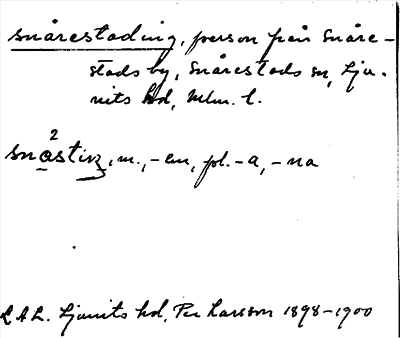 snårestading, person från Snåre-
stads by, Snårestads sn, Lju-
nits hd, Mlm. l.
snǫ²stiŋ, m., -en, pl. -a, -na
L A L. Ljunits hd, Per Larsson 1898-1900